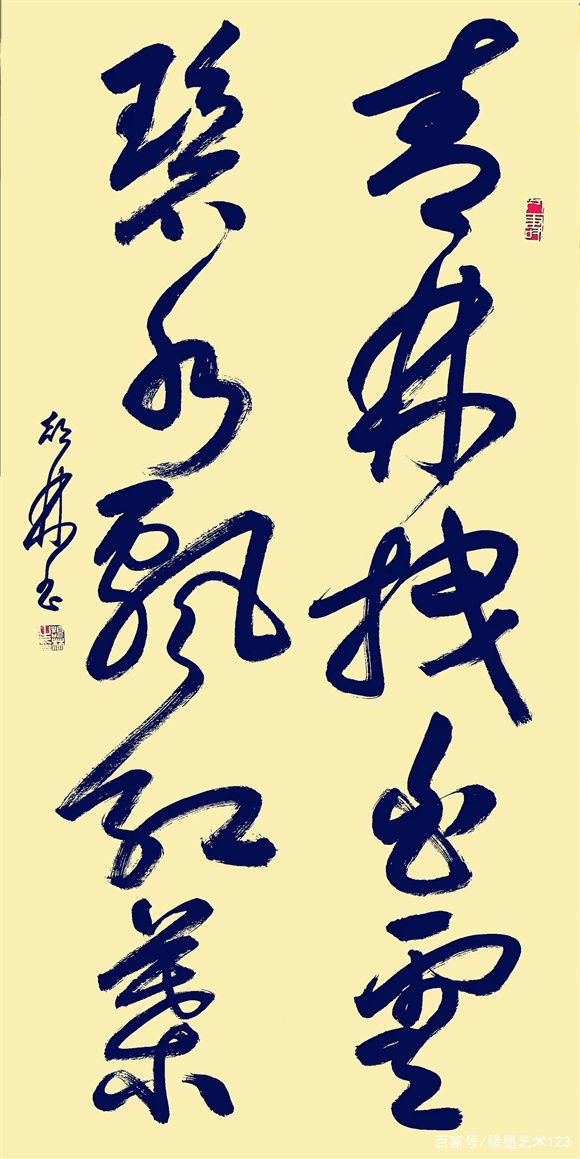 青林拽白雲
碧水飄紅葉
林书
百家号/楮墨艺术123